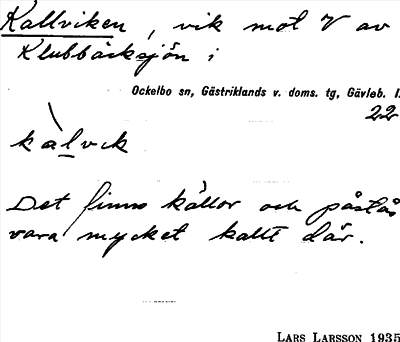 Kallviken, vik mot V av
Klubbäcksjön i
Ockelbo sn, Gästriklands v. doms. tg, Gävleb. l.
22
kàlvik
Det finns källor och påstås
vara mycket kallt där.
LARS LARSSON 1935